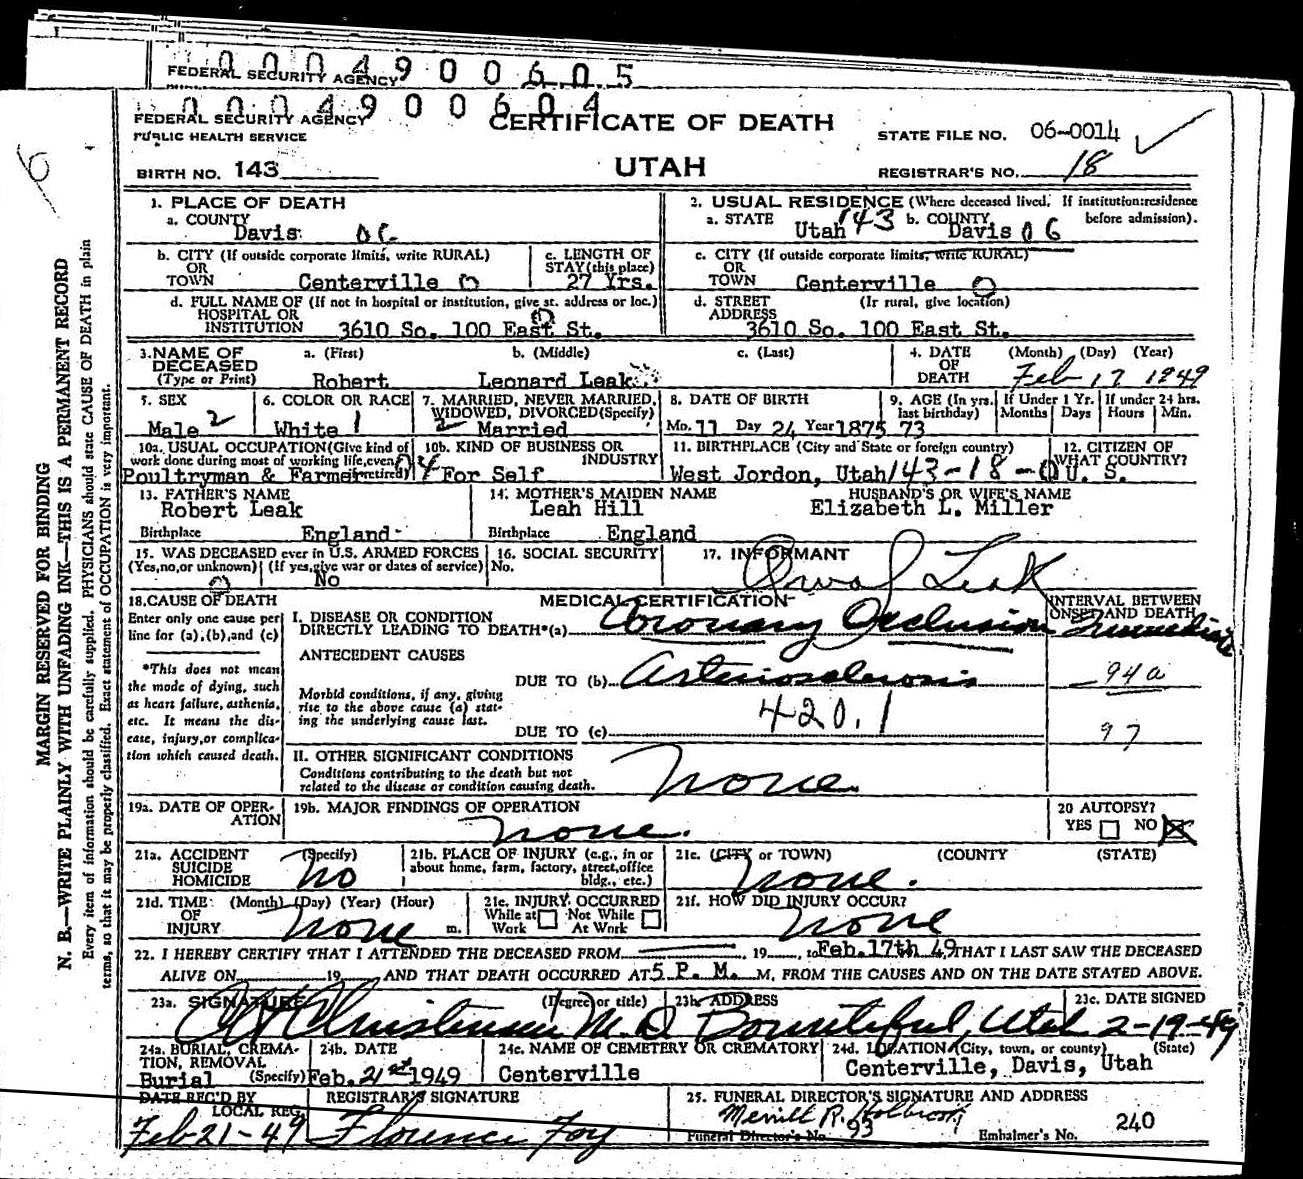 0004900605
FEDERAL SECURITY AGENCY
0004900604
FEDERAL SECURITY AGENCY
PUBLIC HEALTH SERVICE
CERTIFICATE OF DEATH
STATE FILE NO. 06-0014
BIRTH NO. 143
UTAH
REGISTRAR'S NO. 18
6
MARGIN RESERVED FOR BINDING
N. B.—WRITE PLAINLY WITH UNFADING INK—THIS IS A PERMANENT RECORD
Every item of information should be carefully supplied. PHYSICIANS should state CAUSE OF DEATH in plain
terms, so that it may be properly classified. Exact statement of OCCUPATION is very important.
1. PLACE OF DEATH
a. COUNTY
Davis
2. USUAL RESIDENCE (Where deceased lived. If institution:residence
before admission).
a. STATE Utah 143 b. COUNTY Davis 06
b. CITY (If outside corporate limits, write RURAL)
OR
TOWN Centerville 0
c. LENGTH OF
STAY (this place)
27 Yrs.
c. CITY (If outside corporate limits, write RURAL)
OR
TOWN Centerville 0
d. FULL NAME OF (If not in hospital or institution, give st. address or loc.)
HOSPITAL OR
INSTITUTION 3610 So. 100 East St.
d. STREET (If rural, give location)
ADDRESS
3610 So. 100 East St.
3. NAME OF
DECEASED
(Type or Print)
a. (First) b. (Middle) c. (Last)
Robert Leonard Leak
4. DATE
OF
DEATH
(Month) (Day) (Year)
Feb 17 1949
5. SEX
Male 2
6. COLOR OR RACE
White 1
7. MARRIED, NEVER MARRIED,
WIDOWED, DIVORCED(Specify)
2 Married
8. DATE OF BIRTH
Mo. 11 Day 24 Year 1875
9. AGE (In yrs.
last birthday)
73
If Under 1 Yr.
Months Days
If under 24 hrs.
Hours Min.
10a. USUAL OCCUPATION(Give kind of
work done during most of working life, even if retired)
Poultryman & Farmer
10b. KIND OF BUSINESS OR
INDUSTRY
For Self
11. BIRTHPLACE (City and State or foreign country)
West Jordon, Utah 143-18-0
12. CITIZEN OF
WHAT COUNTRY?
U. S.
13. FATHER'S NAME
Robert Leak
Birthplace England
14. MOTHER'S MAIDEN NAME
Leah Hill
Birthplace England
HUSBAND'S OR WIFE'S NAME
Elizabeth L. Miller
15. WAS DECEASED ever in U.S. ARMED FORCES
(Yes, no, or unknown) (If yes, give war or dates of service)
0 No
16. SOCIAL SECURITY
No.
17. INFORMANT
Leak
18. CAUSE OF DEATH
Enter only one cause per
line for (a), (b), and (c)
*This does not mean
the mode of dying, such
as heart failure, asthenia,
etc. It means the dis-
ease, injury, or complica-
tion which caused death.
MEDICAL CERTIFICATION
INTERVAL BETWEEN
ONSET AND DEATH
I. DISEASE OR CONDITION
DIRECTLY LEADING TO DEATH*(a) Coronary Occlusion Immediate
ANTECEDENT CAUSES
DUE TO (b) Arteriosclerosis
94a
Morbid conditions, if any, giving
rise to the above cause (a) stat-
ing the underlying cause last.
420.1
DUE TO (c)
97
II. OTHER SIGNIFICANT CONDITIONS
Conditions contributing to the death but not
related to the disease or condition causing death.
None
19a. DATE OF OPER-
ATION
19b. MAJOR FINDINGS OF OPERATION
none.
20 AUTOPSY?
YES NO
21a. ACCIDENT (Specify)
SUICIDE
HOMICIDE
no
21b. PLACE OF INJURY (e.g., in or
about home, farm, factory, street, office
bldg., etc.)
21c. (CITY or TOWN) (COUNTY) (STATE)
none.
21d. TIME (Month) (Day) (Year) (Hour)
OF
INJURY none m.
21e. INJURY OCCURRED
While at Work Not While At Work
21f. HOW DID INJURY OCCUR?
none
22. I HEREBY CERTIFY THAT I ATTENDED THE DECEASED FROM 19, to Feb. 17th 49, THAT I LAST SAW THE DECEASED
ALIVE ON 19 AND THAT DEATH OCCURRED AT 5 P. M. M, FROM THE CAUSES AND ON THE DATE STATED ABOVE.
23a. SIGNATURE (Degree or title)
Christensen M.D.
23b. ADDRESS
Bountiful, Utah
23c. DATE SIGNED
2-19-49
24a. BURIAL, CREMA-
TION, REMOVAL
Burial (Specify)
24b. DATE
Feb. 21st 1949
24c. NAME OF CEMETERY OR CREMATORY
Centerville
24d. LOCATION (City, town, or county) (State)
Centerville, Davis, Utah
DATE REC'D BY
LOCAL REG.
Feb 21-49
REGISTRAR'S SIGNATURE
Florence Foy
25. FUNERAL DIRECTOR'S SIGNATURE AND ADDRESS
Merrill R. Holbrook
Funeral Director's No. 93
Embalmer's No. 240